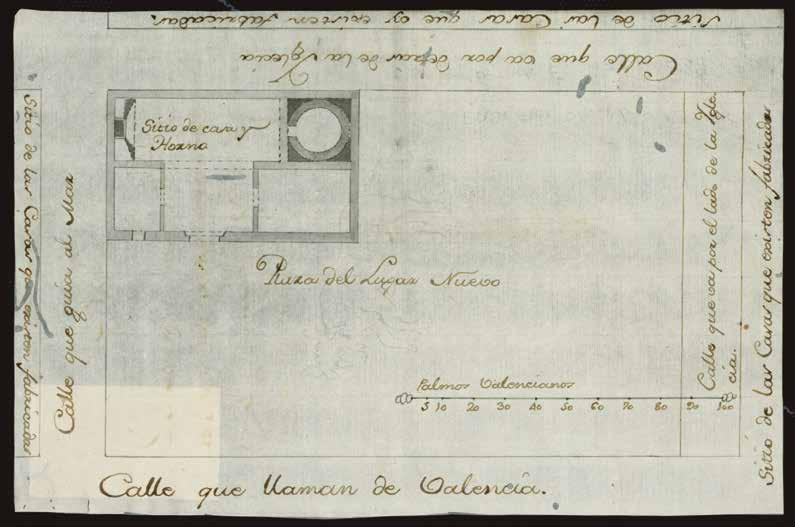 Sitio de las Casas que oy existen fabricadas.
Calle que va por detras de la Yglecia
Sitio de las Casas qe. existen fabricadas
Calle que guia al Mar
Sitio de casa y
Horno
Plaza del Lugar Nuevo
Palmos Valencianos
5 10 20 30 40 50 60 70 80 90 100
Calle que va por el lado de la Ygle-
cia.
Sitio de las Casas que existen fabricadas
Calle que llaman de Valencia.